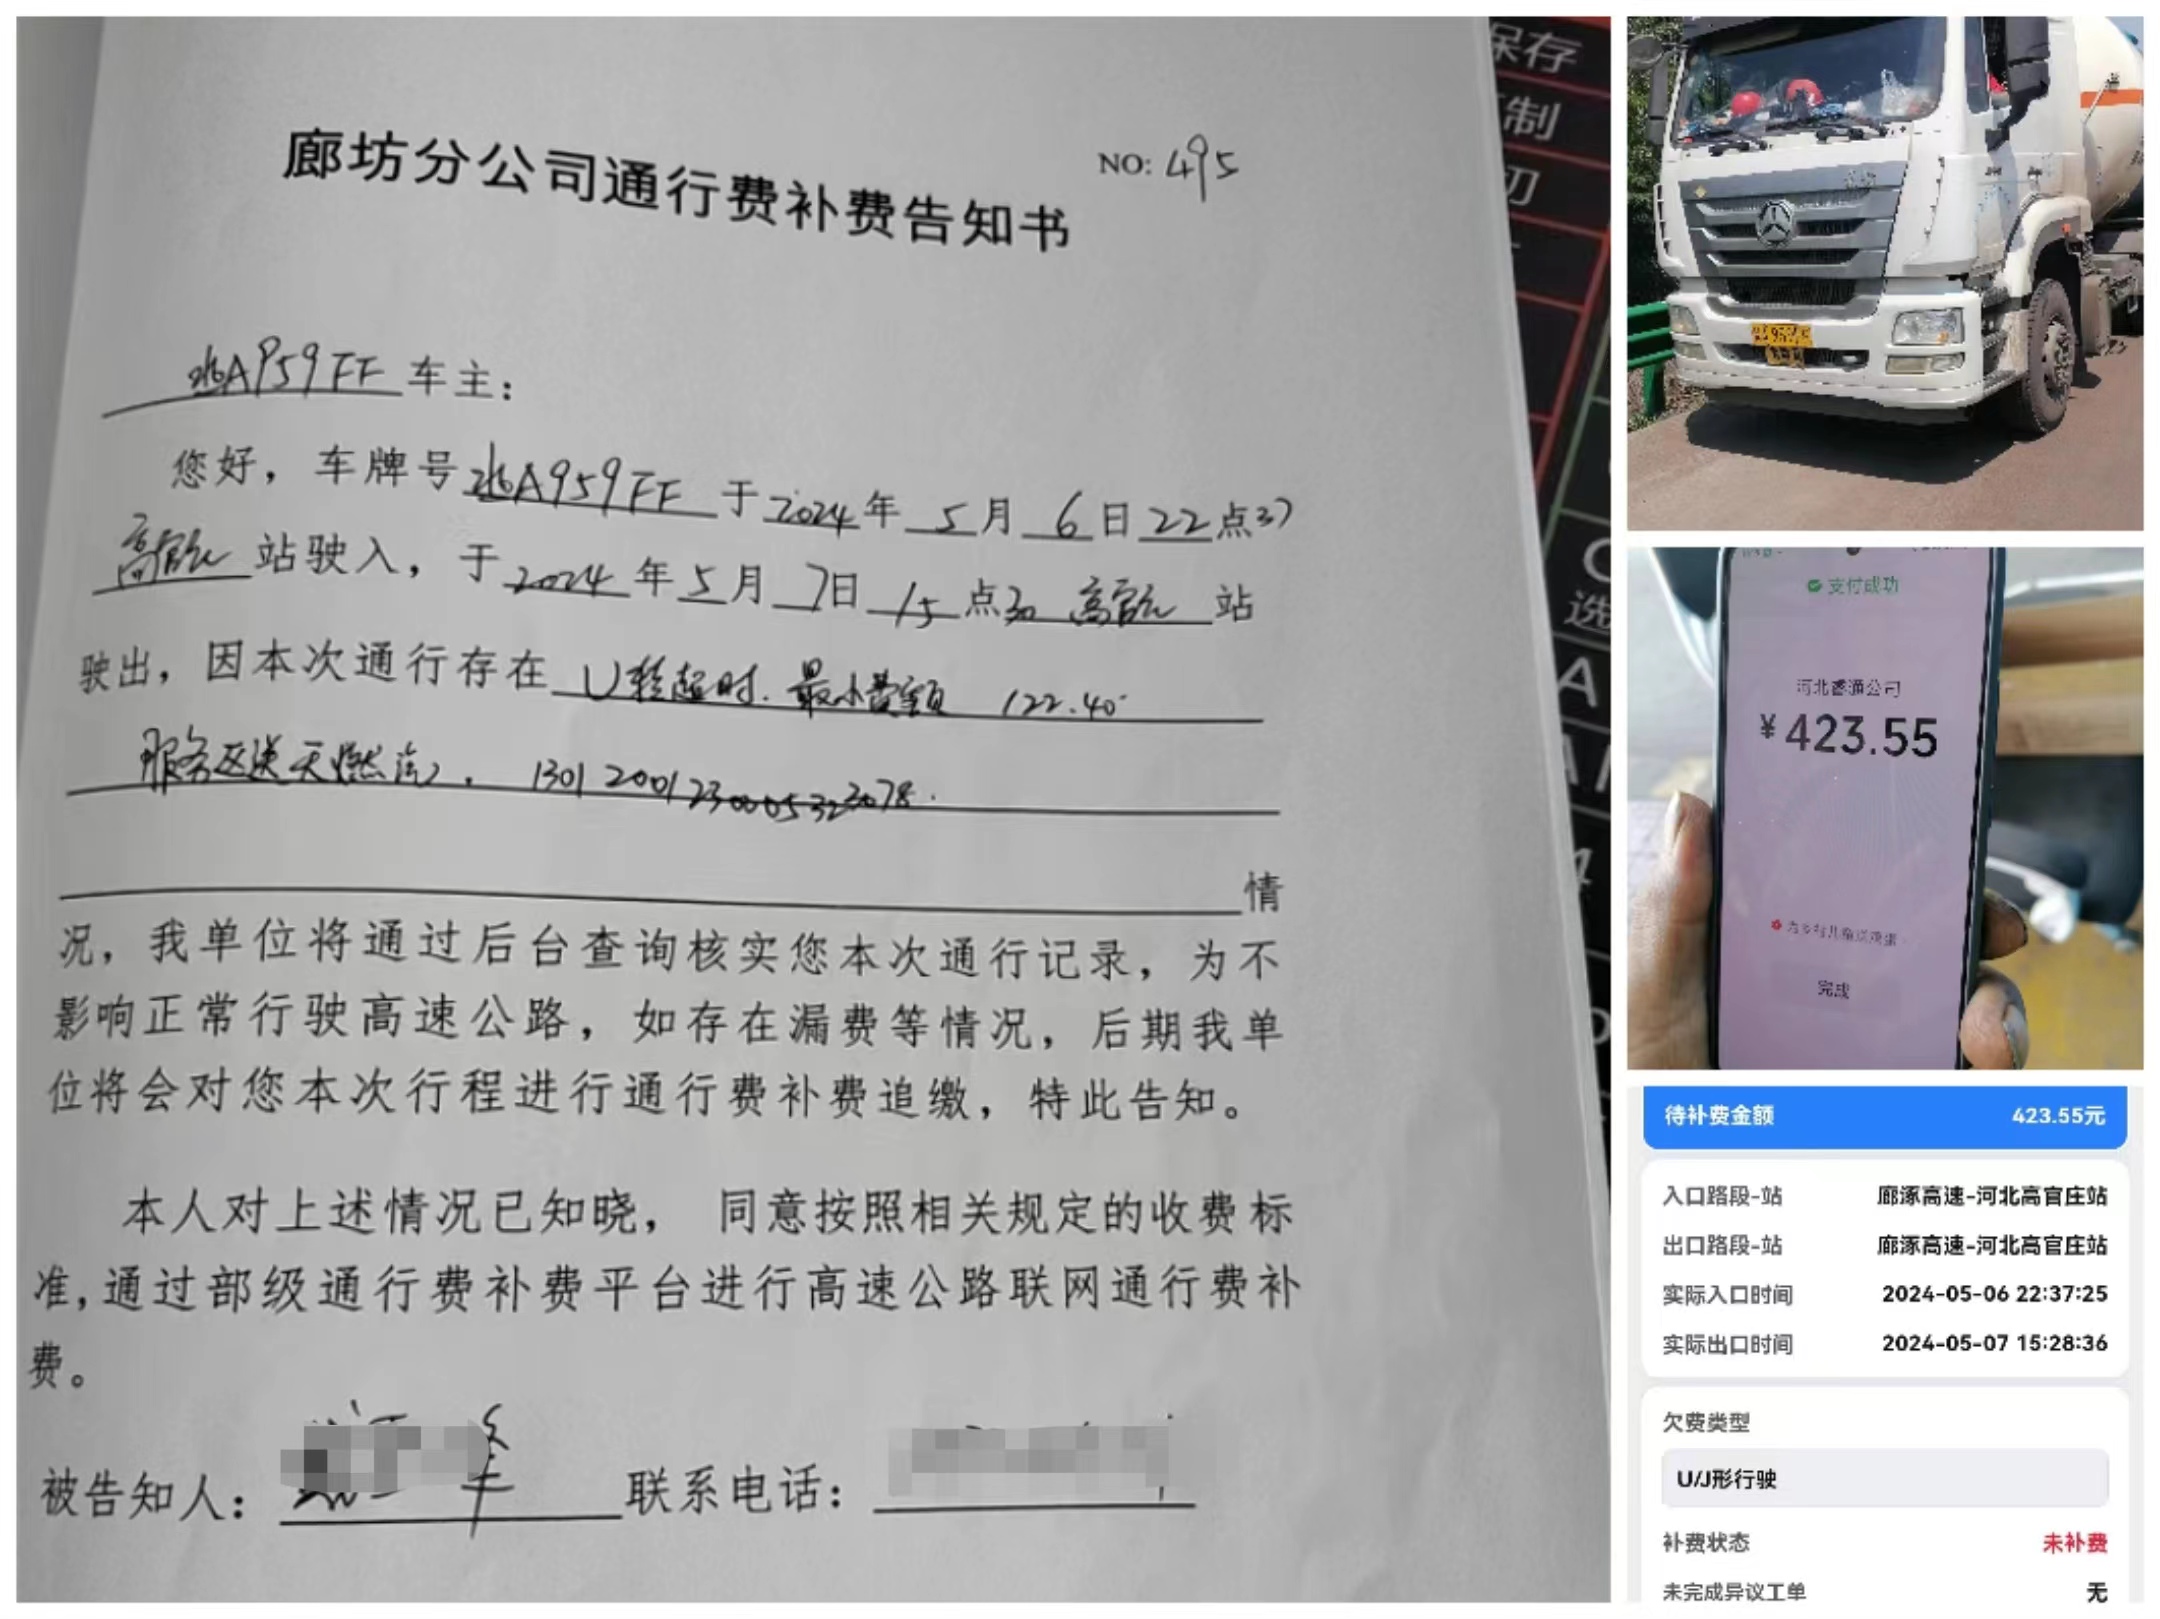 廊坊分公司通行费补费告知书
NO: 495
A959FF 车主：
您好，车牌号 A959FF 于 2024 年 5 月 6 日 22 点 37
高官庄 站驶入，于 2024 年 5 月 7 日 15 点 30 高官庄 站
驶出，因本次通行存在 U转超时. 最小费额 122.40
服务区送天燃气, 1301 2001230005323078.
情
况，我单位将通过后台查询核实您本次通行记录，为不
影响正常行驶高速公路，如存在漏费等情况，后期我单
位将会对您本次行程进行通行费补费追缴，特此告知。
本人对上述情况已知晓， 同意按照相关规定的收费标
准,通过部级通行费补费平台进行高速公路联网通行费补
费。
被告知人：
联系电话：
保存
制
切
选
A
支付成功
河北睿通公司
¥423.55
完成
待补费金额 423.55元
入口路段-站 廊涿高速-河北高官庄站
出口路段-站 廊涿高速-河北高官庄站
实际入口时间 2024-05-06 22:37:25
实际出口时间 2024-05-07 15:28:36
欠费类型
U/J形行驶
补费状态 未补费
未完成异议工单 无